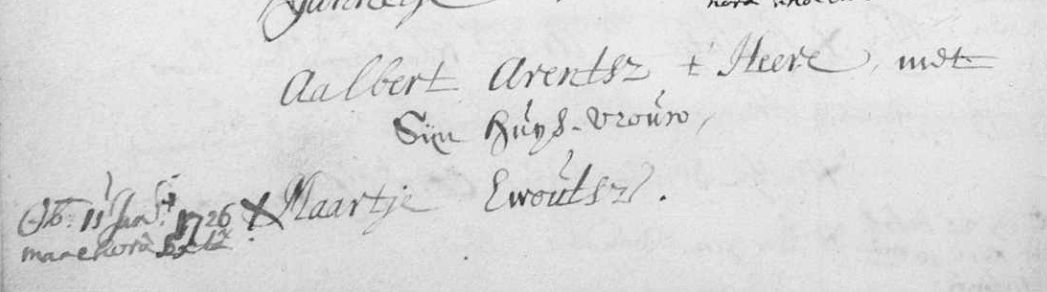 Aalbert Arentsz t' Heere, met
Sijn Huijs-vrouw,
Maartje Ewoutsz.
Ob: 15 Jan: 1726
mane hora